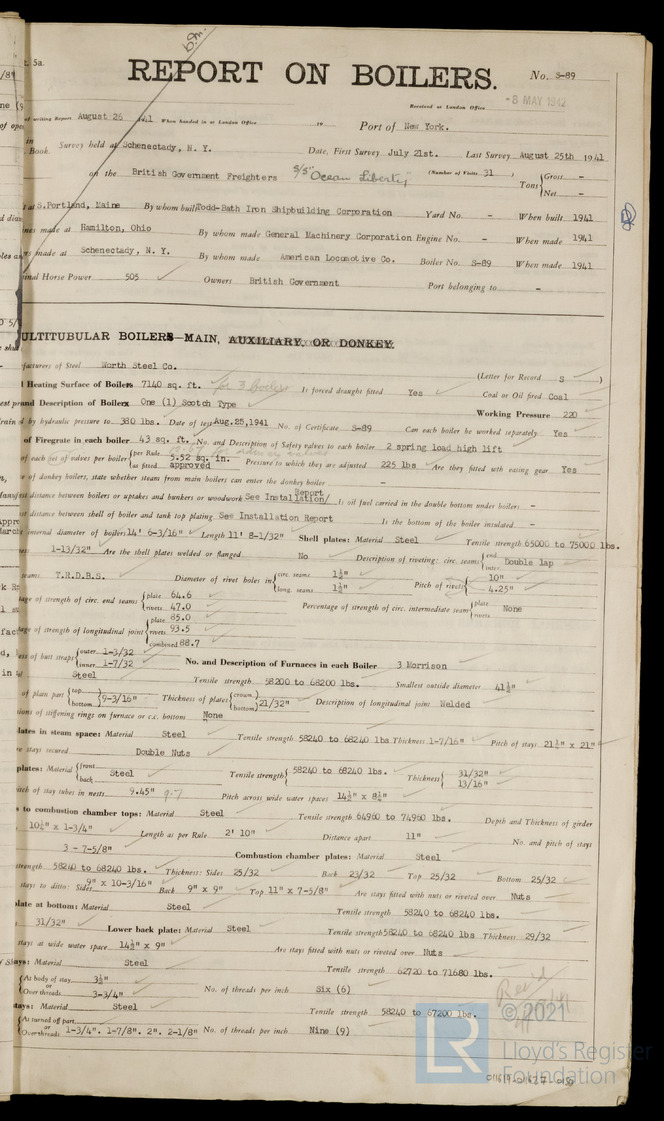 b.m.
t. 5a.
REPORT ON BOILERS.
No. S-89
Received at London Office
-8 MAY 1942
of writing Report August 26 1941 When handed in at London Office 19 Port of New York.
in Book. Survey held at Schenectady, N. Y. Date, First Survey July 21st. Last Survey August 25th 1941
on the British Government Freighters S/S "Ocean Liberty" (Number of Visits 31) Tons { Gross - Net -
at S.Portland, Maine By whom built Todd-Bath Iron Shipbuilding Corporation Yard No. - When built 1941
nes made at Hamilton, Ohio By whom made General Machinery Corporation Engine No. - When made 1941
rs made at Schenectady, N. Y. By whom made American Locomotive Co. Boiler No. S-89 When made 1941
inal Horse Power 505 Owners British Government Port belonging to -
ULTITUBULAR BOILERS—MAIN, AUXILIARY, OR DONKEY.
facturers of Steel Worth Steel Co. (Letter for Record S )
l Heating Surface of Boilers 7140 sq. ft. for 3 boilers Is forced draught fitted Yes Coal or Oil fired Coal
and Description of Boilers One (1) Scotch Type Working Pressure 220
d by hydraulic pressure to 380 lbs. Date of test Aug.25,1941 No. of Certificate S-89 Can each boiler be worked separately Yes
of Firegrate in each boiler 43 sq. ft. No. and Description of Safety valves to each boiler 2 spring load high lift
of each set of valves per boiler { per Rule 5.52 sq. in. as fitted approved Pressure to which they are adjusted 225 lbs Are they fitted with easing gear Yes
e of donkey boilers, state whether steam from main boilers can enter the donkey boiler -
est distance between boilers or uptakes and bunkers or woodwork See Installation/ Report Is oil fuel carried in the double bottom under boilers -
st distance between shell of boiler and tank top plating See Installation Report Is the bottom of the boiler insulated -
internal diameter of boilers 14' 6-3/16" Length 11' 8-1/32" Shell plates: Material Steel Tensile strength 65000 to 75000 lbs.
1-13/32" Are the shell plates welded or flanged No Description of riveting: circ. seams { end Double lap inter.
seams T.R.D.B.S. Diameter of rivet holes in { circ. seams 1½" long. seams 1½" Pitch of rivets { 10" 4.25"
age of strength of circ. end seams { plate 64.6 rivets 47.0 Percentage of strength of circ. intermediate seam { plate None rivets
age of strength of longitudinal joint { plate 85.0 rivets 93.5 combined 88.7
ess of butt straps { outer 1-3/32 inner 1-7/32 No. and Description of Furnaces in each Boiler 3 Morrison
Steel Tensile strength 58200 to 68200 lbs. Smallest outside diameter 41½"
of plain part { top bottom 9-3/16" Thickness of plates { crown bottom 21/32" Description of longitudinal joint Welded
ions of stiffening rings on furnace or c.c. bottom None
lates in steam space: Material Steel Tensile strength 58240 to 68240 lbs Thickness 1-7/16" Pitch of stays 21½" x 21"
re stays secured Double Nuts
plates: Material { front back Steel Tensile strength { 58240 to 68240 lbs. Thickness { 31/32" 13/16"
itch of stay tubes in nests 9.45" Pitch across wide water spaces 14½" x 8¼"
s to combustion chamber tops: Material Steel Tensile strength 64960 to 74960 lbs. Depth and Thickness of girder
10½" x 1-3/4" Length as per Rule 2' 10" Distance apart 11" No. and pitch of stays
3 - 7-5/8" Combustion chamber plates: Material Steel
strength 58240 to 68240 lbs. Thickness: Sides 25/32 Back 23/32 Top 25/32 Bottom 25/32
stays to ditto: Sides 9" x 10-3/16" Back 9" x 9" Top 11" x 7-5/8" Are stays fitted with nuts or riveted over Nuts
plate at bottom: Material Steel Tensile strength 58240 to 68240 lbs.
31/32" Lower back plate: Material Steel Tensile strength 58240 to 68240 lbs Thickness 29/32
stays at wide water space 14½" x 9" Are stays fitted with nuts or riveted over Nuts
Stays: Material Steel Tensile strength 62720 to 71680 lbs.
{ At body of stay 3½" or Over threads 3-3/4" No. of threads per inch Six (6)
tays: Material Steel Tensile strength 58240 to 67200 lbs.
{ At turned off part or Over threads 1-3/4". 1-7/8". 2". 2-1/8" No. of threads per inch Nine (9)
LR
© 2021
Lloyd's Register
Foundation